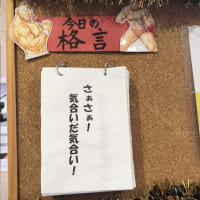 今日の
格言
さぁさぁ!
気合いだ気合い!